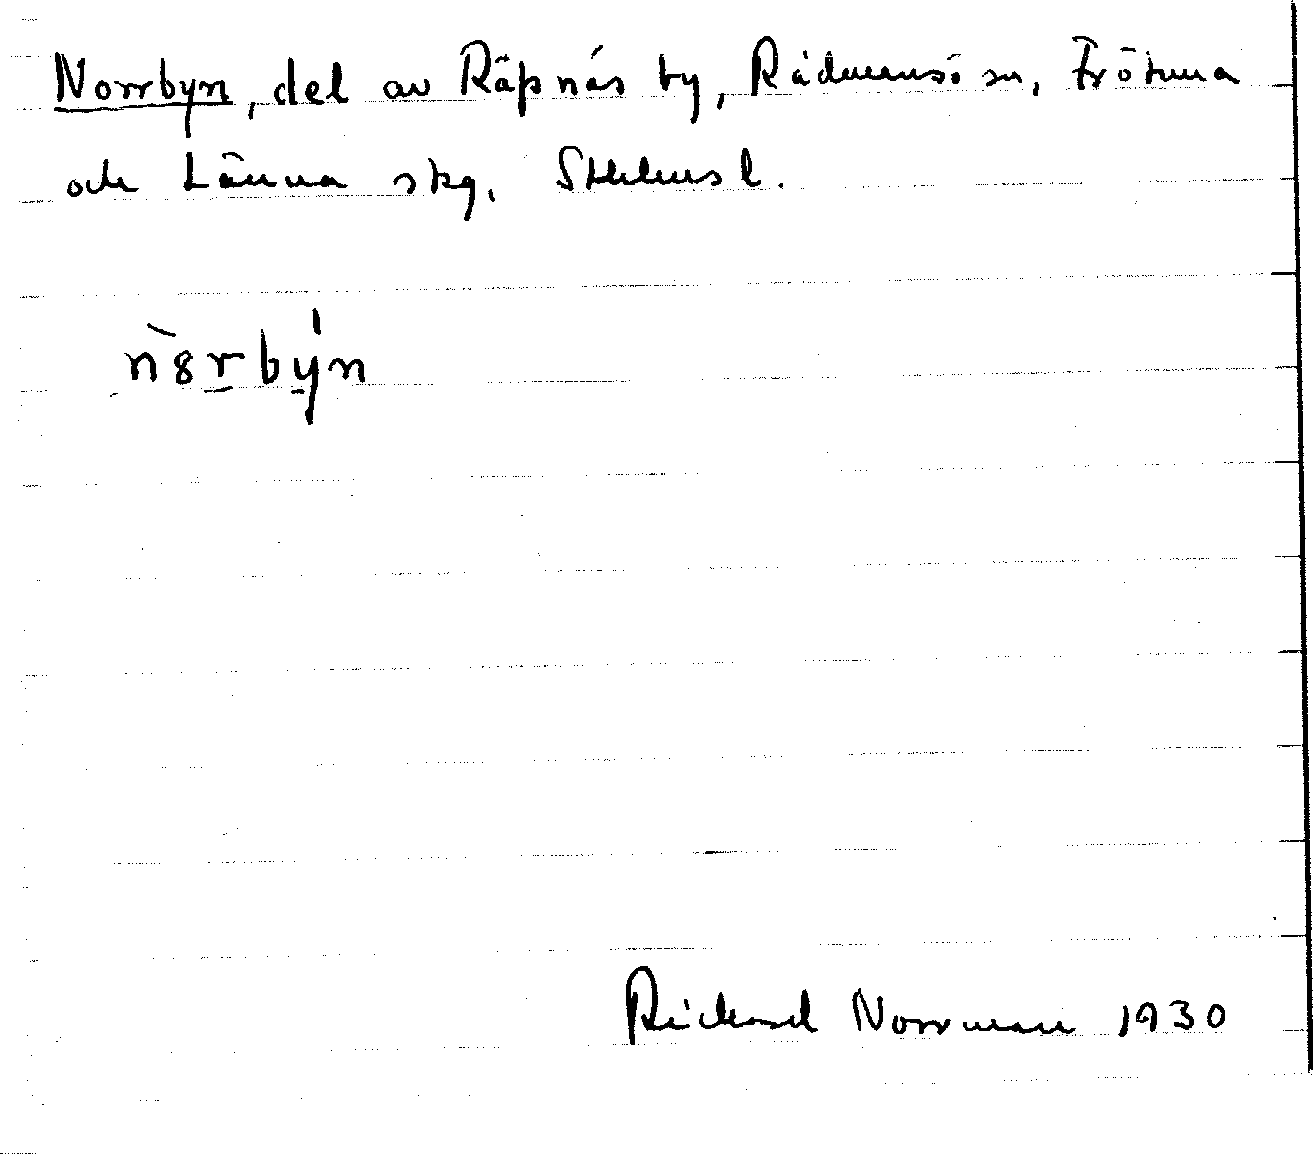 Norrbyn, del av Räpnäs by, Rådmansö sn, Frötuna
och Länna skg, Sthlms l.
n`8rby´n
Rickard Norrman 1930